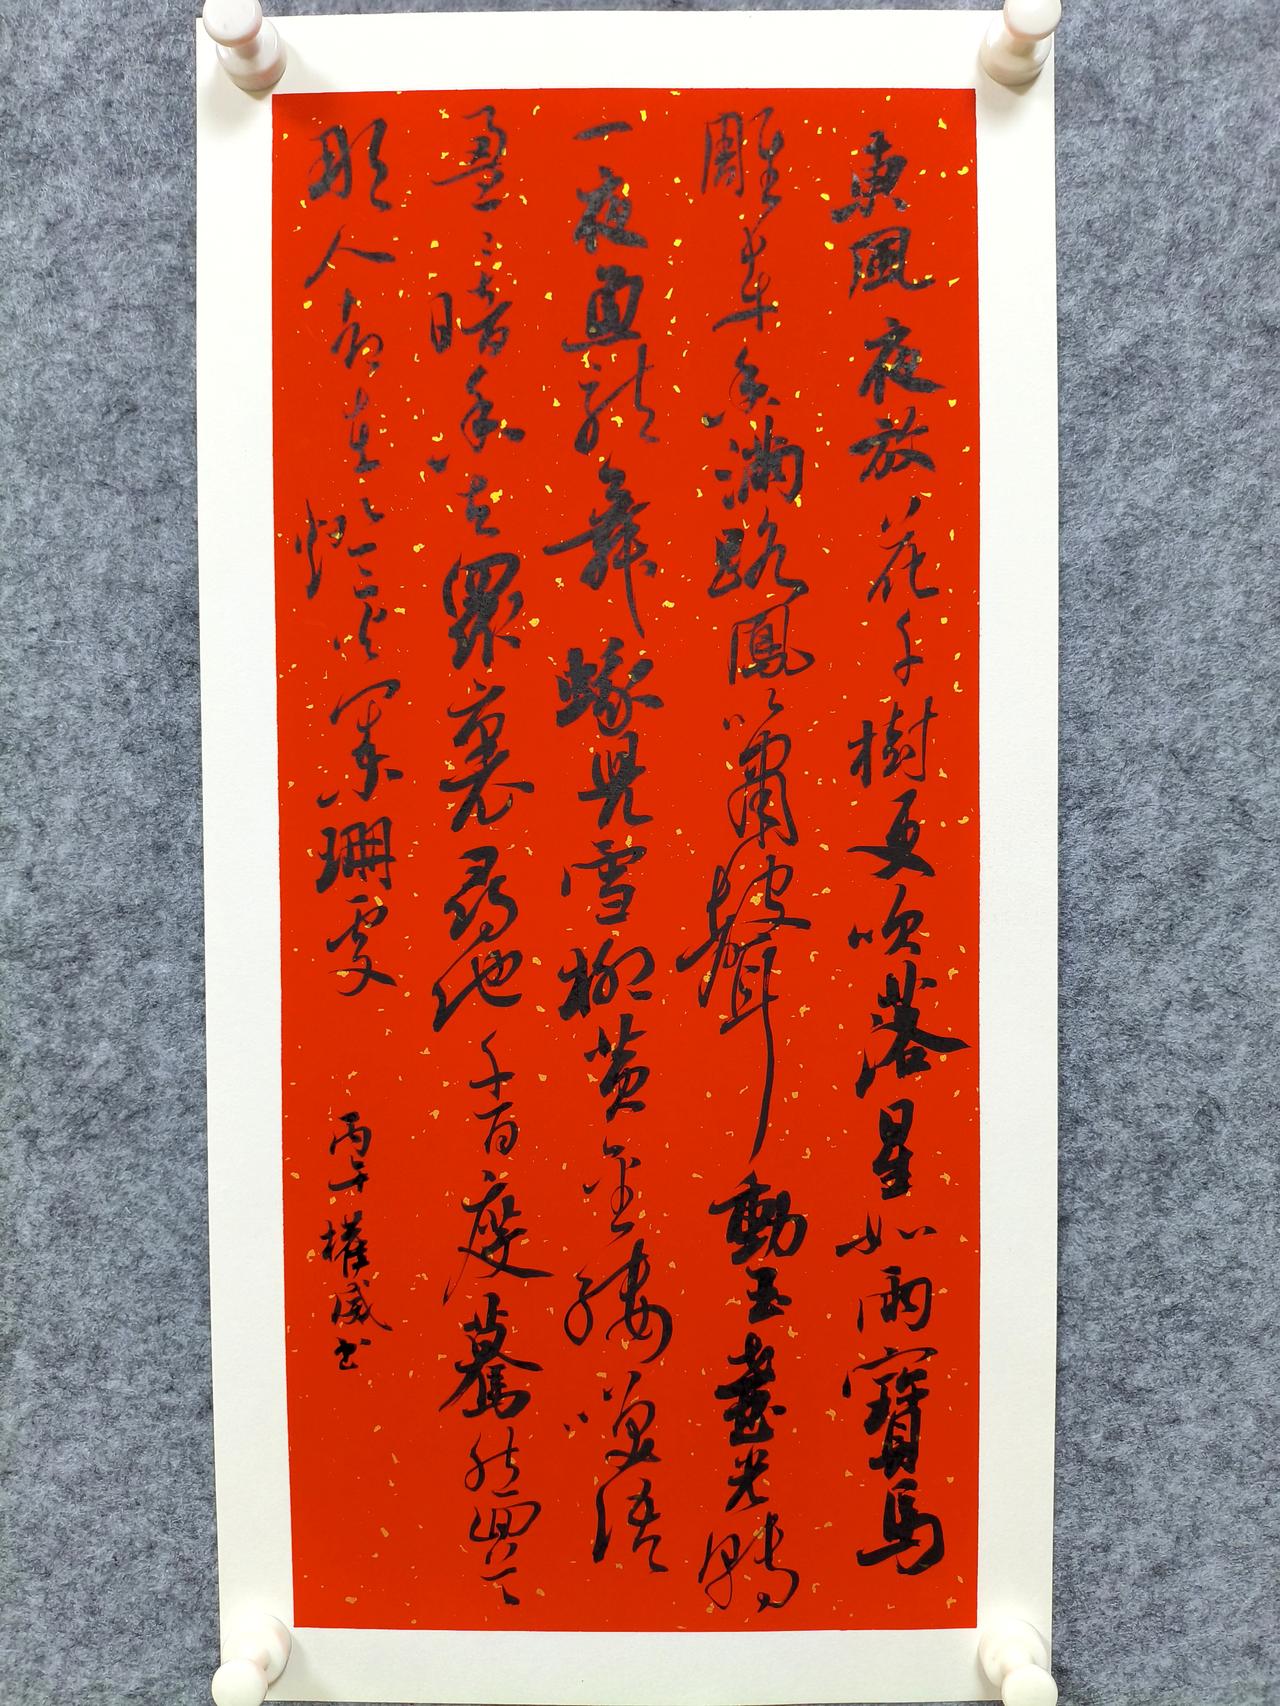 東風夜放花千樹更吹落星如雨寶馬
雕車香滿路鳳簫聲動玉壺光轉
一夜魚龍舞蛾兒雪柳黃金縷笑語
盈〻暗香去眾裏尋他千百度驀然回首
那人却在燈火闌珊處
丙午權威書